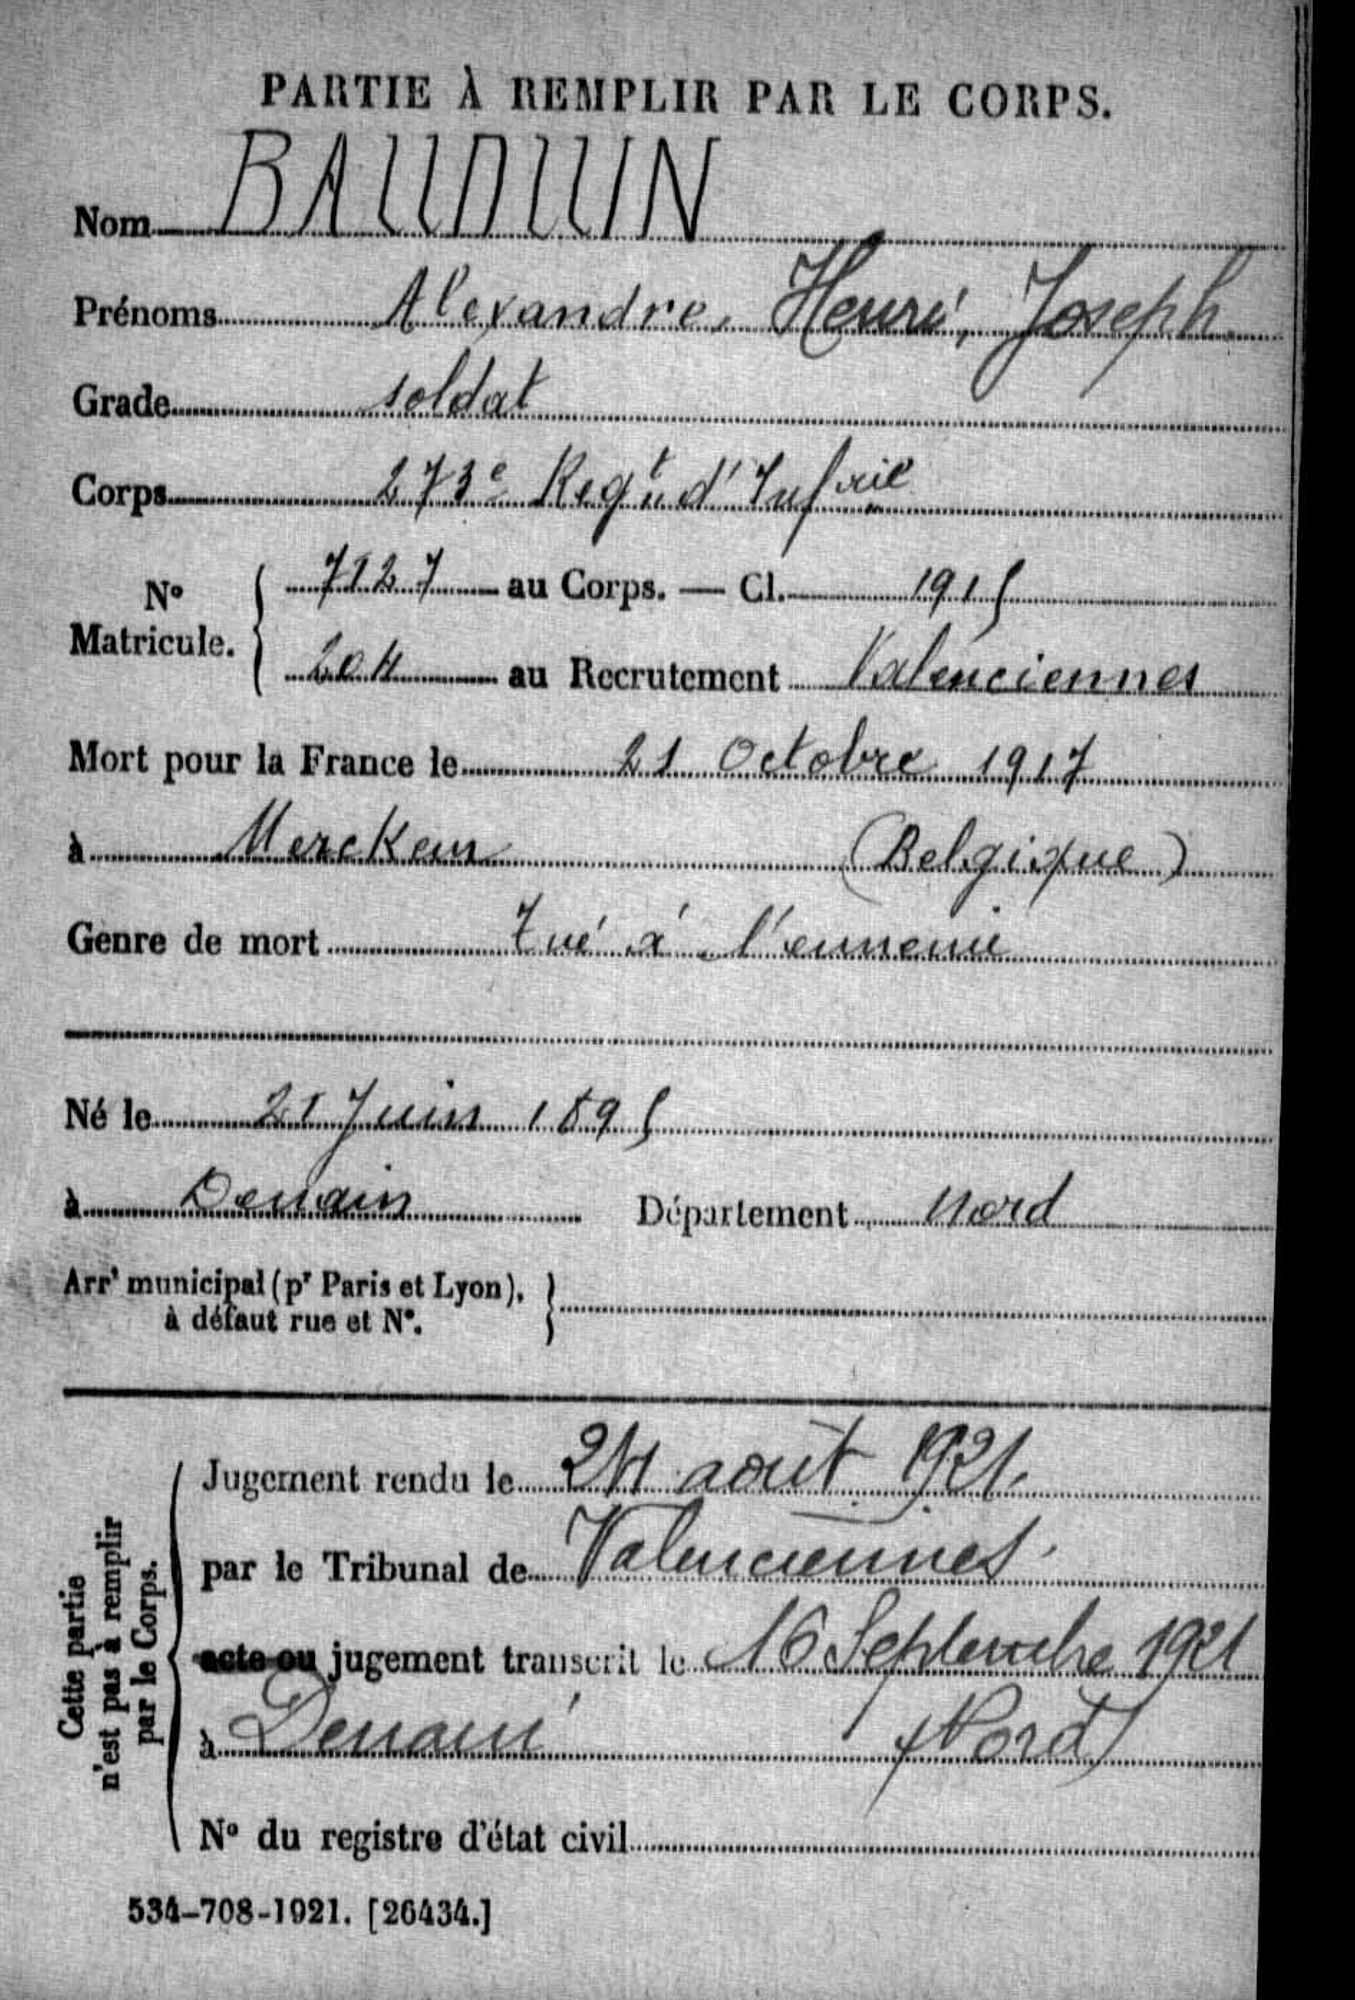 PARTIE À REMPLIR PAR LE CORPS.
Nom BAUDUIN
Prénoms Alexandre, Henri, Joseph
Grade soldat
Corps 273e Regt d'Infrie
No Matricule. { 7127 au Corps. — Cl. 1915
204 au Recrutement Valenciennes
Mort pour la France le 21 Octobre 1917
à Merckem (Belgique)
Genre de mort Tué à l'ennemi
Né le 21 Juin 1895
à Denain Département Nord
Arrt municipal (pr Paris et Lyon), }
à défaut rue et No.
Cette partie
n'est pas à remplir
par le Corps.
Jugement rendu le 24 août 1921.
par le Tribunal de Valenciennes.
acte ou jugement transcrit le 16 Septembre 1921
à Denain (Nord)
No du registre d'état civil
534-708-1921. [26434.]